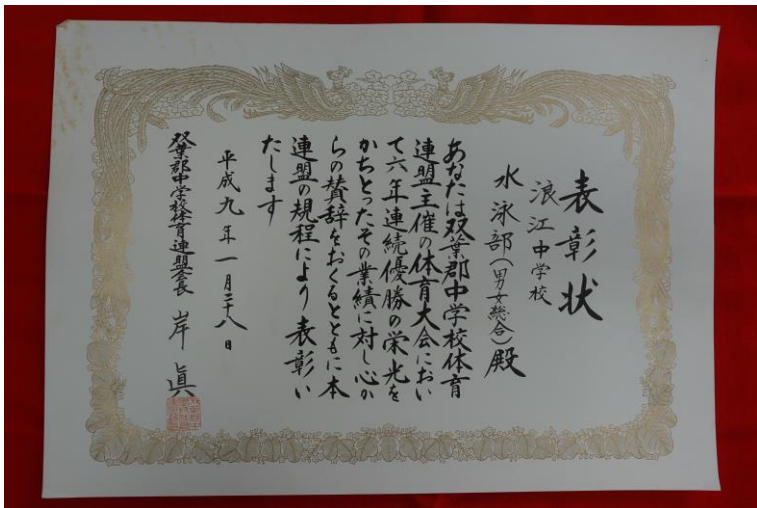 表彰状
浪江中学校
水泳部(男女総合)殿
あなたは双葉郡中学校体育
連盟主催の体育大会におい
て六年連続優勝の栄光を
かちとったその業績に対し心か
らの賛辞をおくるとともに本
連盟の規程により表彰い
たします
平成九年一月二十八日
双葉郡中学校体育連盟会長 岸眞